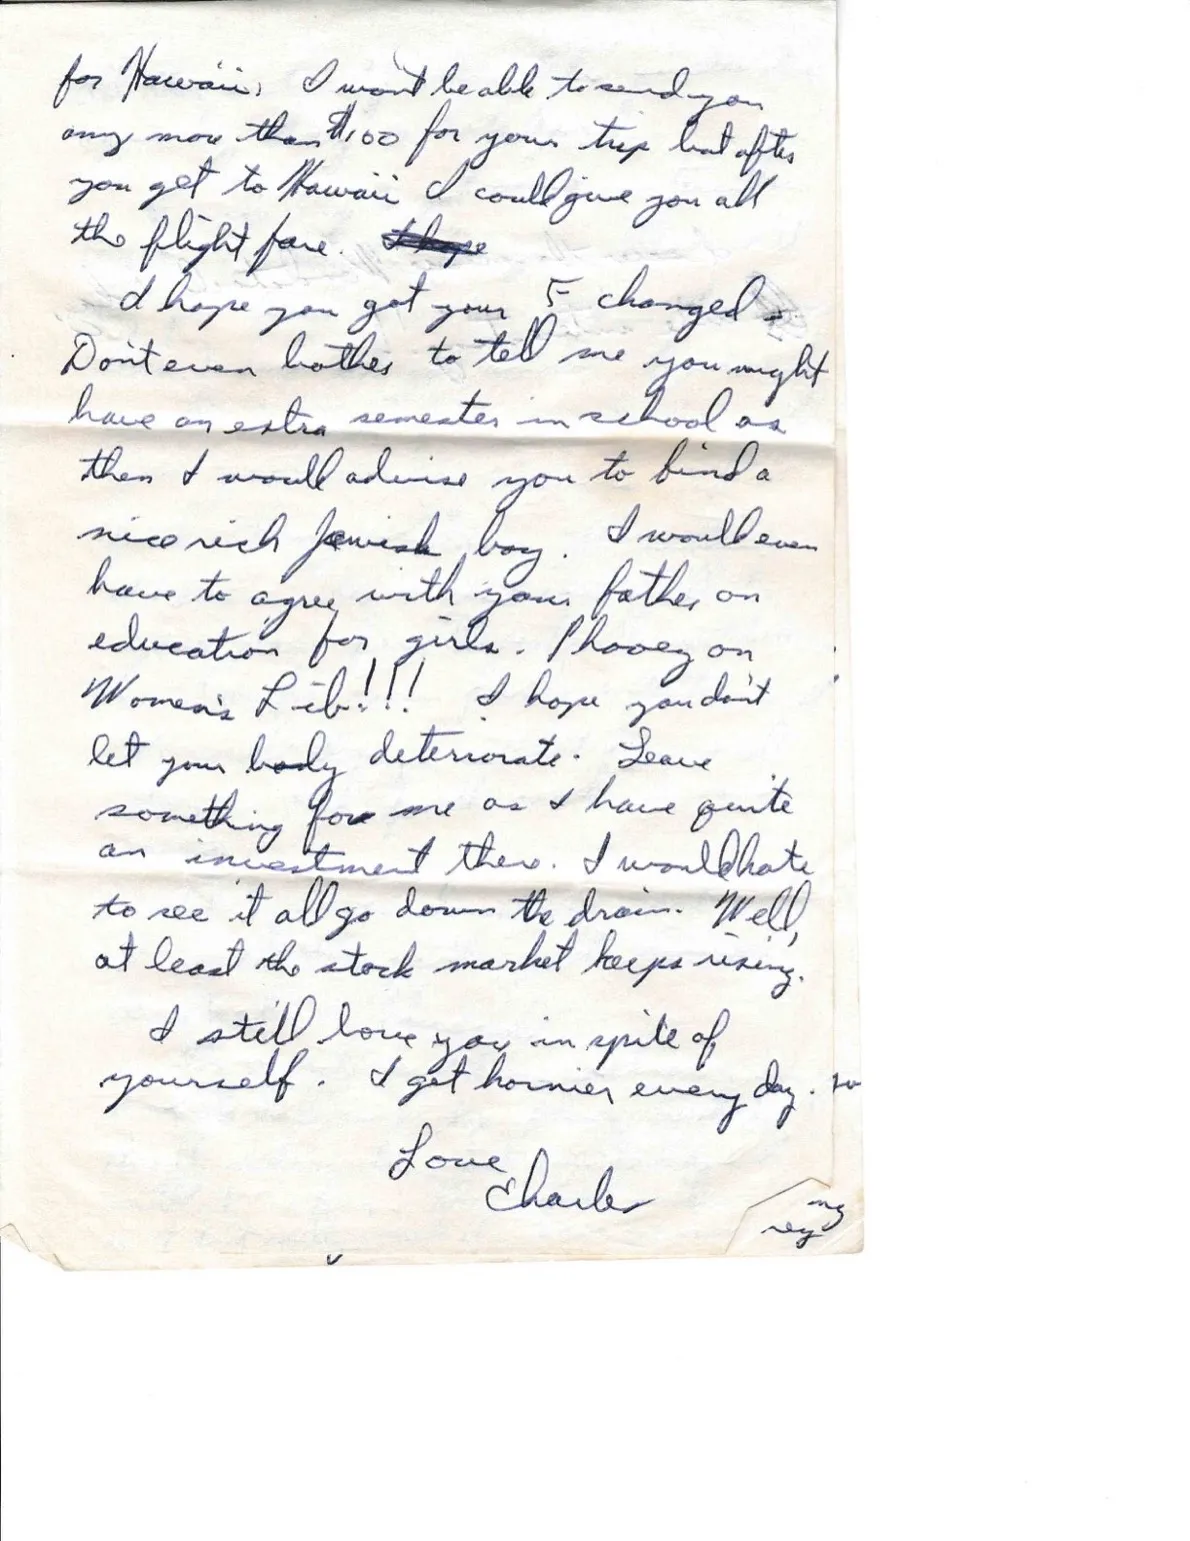 for Hawaii. I won't be able to send you
any more than $100 for your trip but after
you get to Hawaii I could give you all
the flight fare. I hope
I hope you got your F changed.
Don't even bother to tell me you might
have an extra semester in school as
then I would advise you to bind a
nice rich Jewish boy. I would even
have to agree with your father on
education for girls. Phooey on
Women's Lib!!! I hope you don't
let your body deteriorate. Leave
something for me as I have quite
an investment there. I would hate
to see it all go down the drain. Well,
at least the stock market keeps rising.
I still love you in spite of
yourself. I get hornier every day.
Love
Charles
my